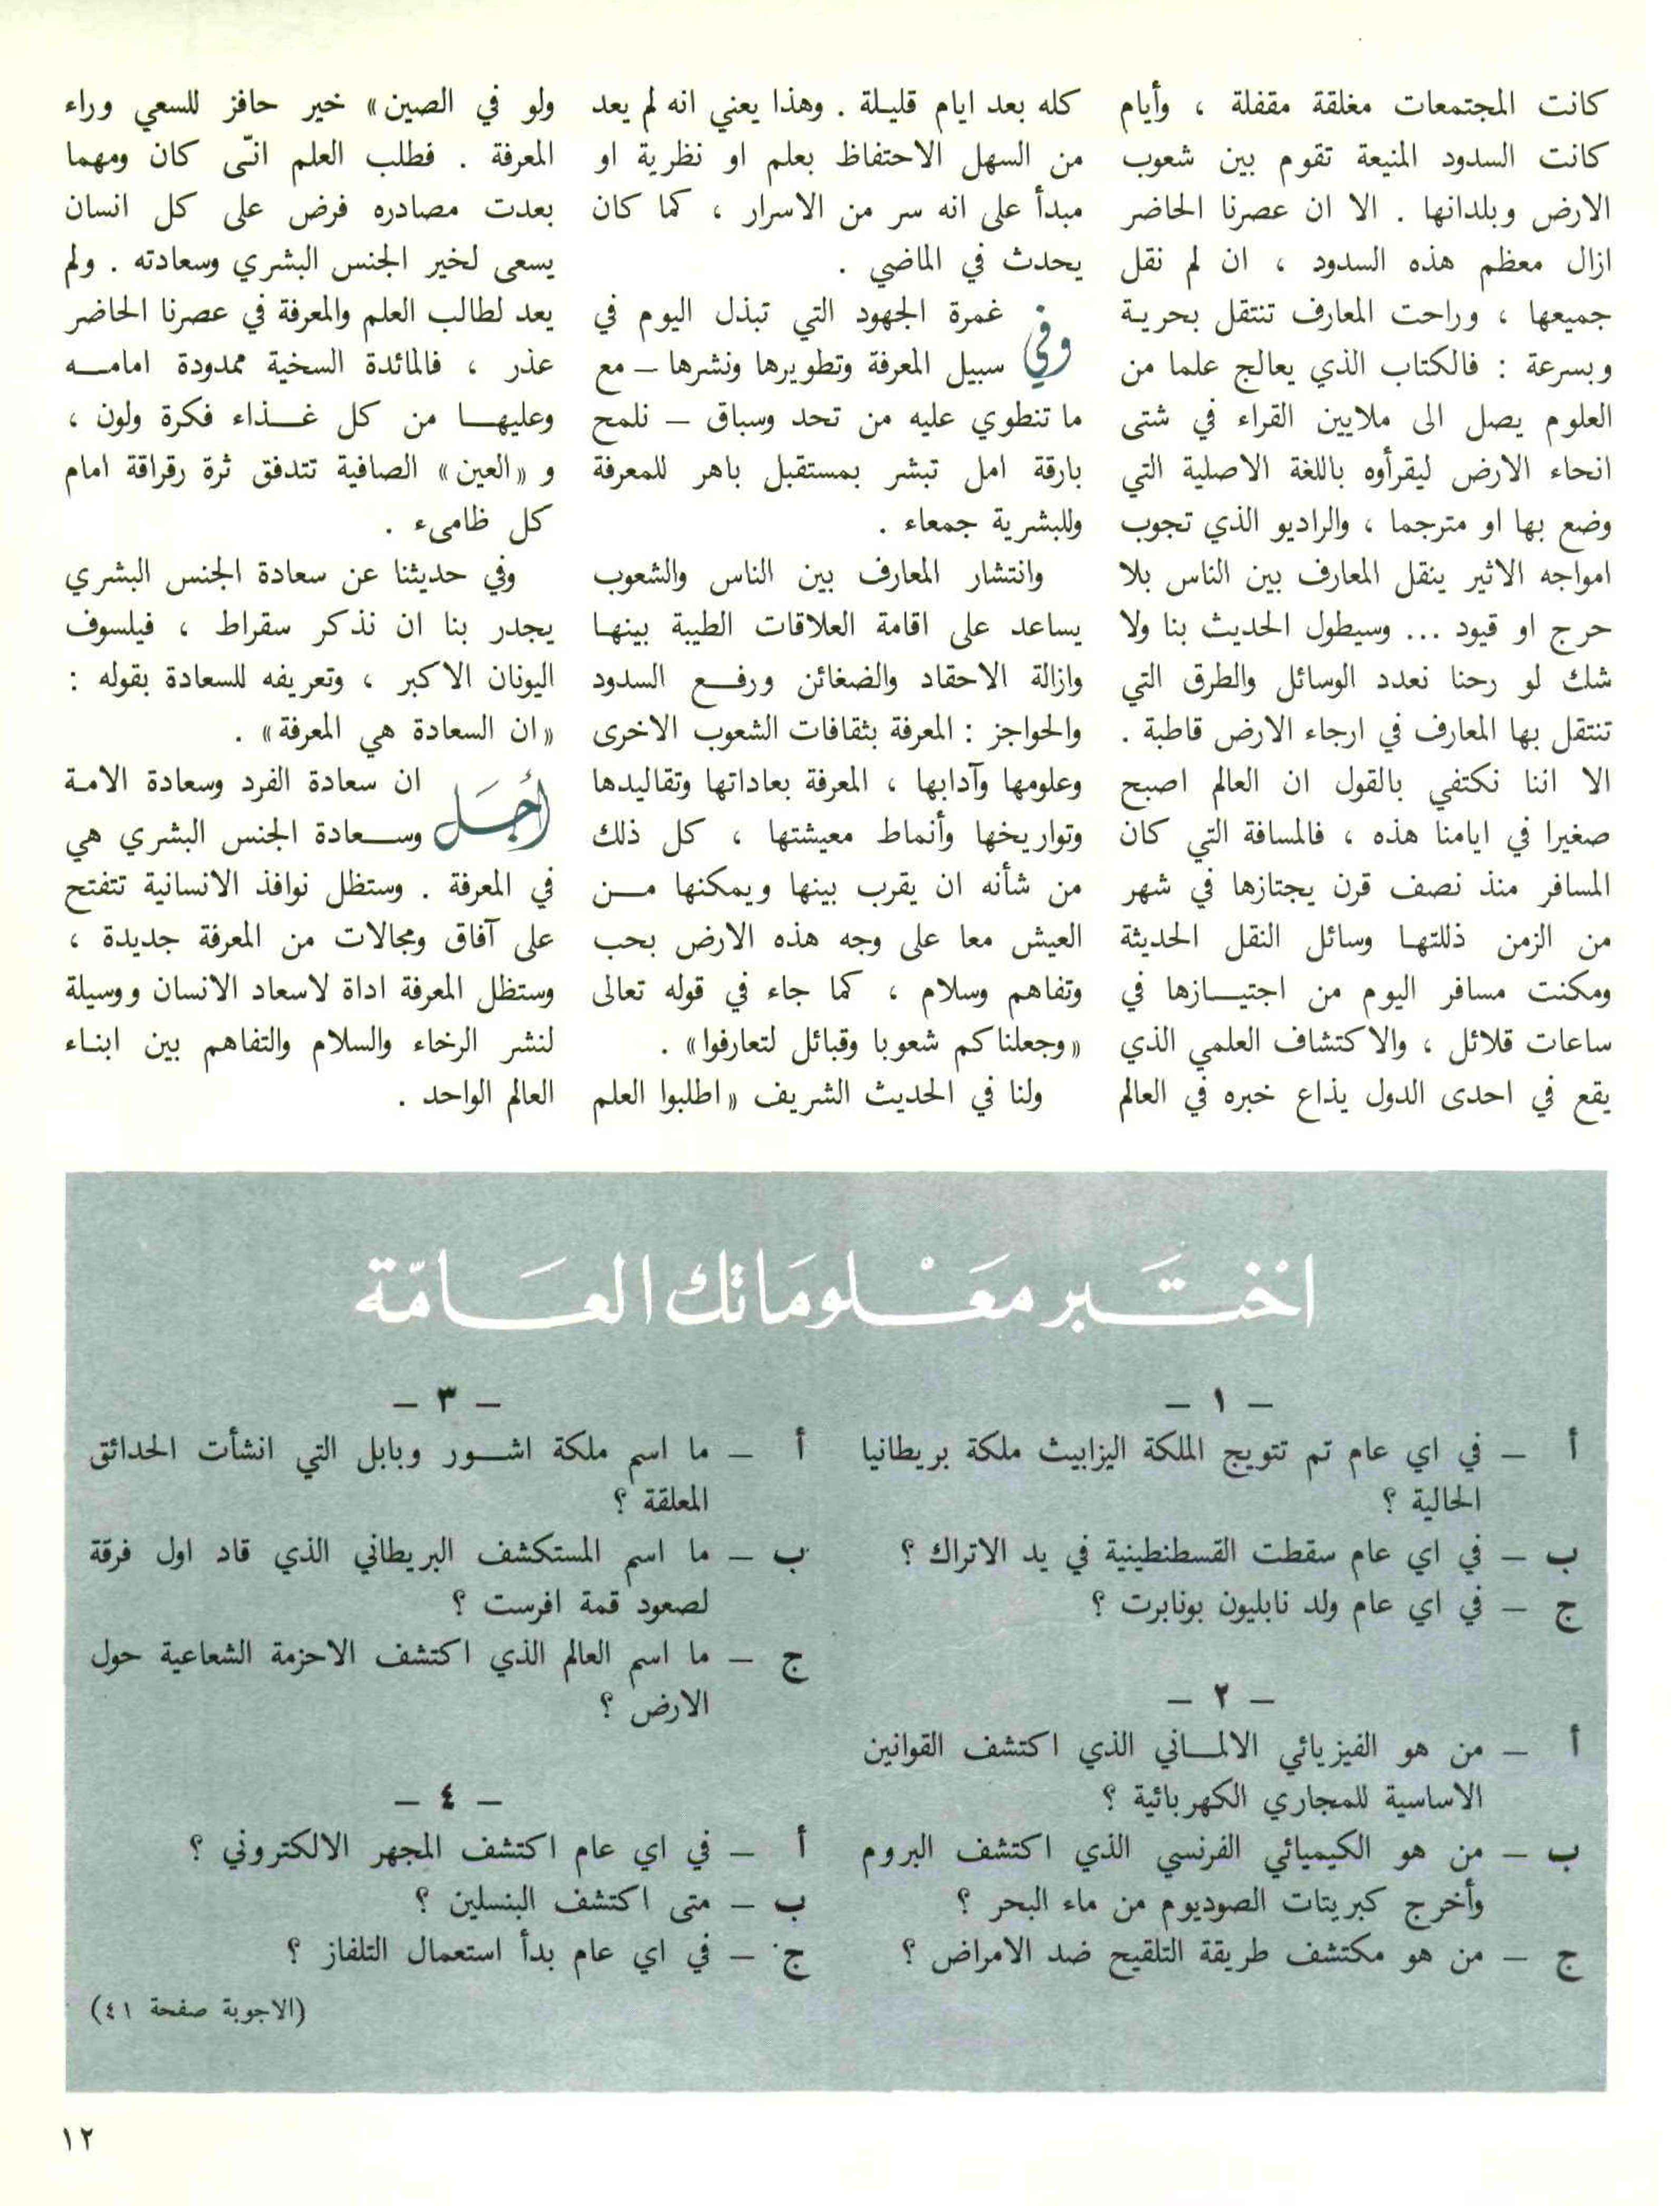 كانت المجتمعات مغلقة مقفلة ، وأيام
كانت السدود المنيعة تقوم بين شعوب
الارض وبلدانها . الا ان عصرنا الحاضر
ازال معظم هذه السدود ، ان لم نقل
جميعها ، وراحت المعارف تنتقل بحرية
وبسرعة : فالكتاب الذي يعالج علما من
العلوم يصل الى ملايين القراء في شتى
انحاء الارض ليقرأوه باللغة الاصلية التي
وضع بها او مترجما ، والراديو الذي تجوب
امواجه الاثير ينقل المعارف بين الناس بلا
حرج او قيود ... وسيطول الحديث بنا ولا
شك لو رحنا نعدد الوسائل والطرق التي
تنتقل بها المعارف في ارجاء الارض قاطبة .
الا اننا نكتفي بالقول ان العالم اصبح
صغيرا في ايامنا هذه ، فالمسافة التي كان
المسافر منذ نصف قرن يجتازها في شهر
من الزمن ذللتها وسائل النقل الحديثة
ومكنت مسافر اليوم من اجتيـــازها في
ساعات قلائل ، والاكتشاف العلمي الذي
يقع في احدى الدول يذاع خبره في العالم
كله بعد ايام قليلة . وهذا يعني انه لم يعد
من السهل الاحتفاظ بعلم او نظرية او
مبدأ على انه سر من الاسرار ، كما كان
يحدث في الماضي .
وفي غمرة الجهود التي تبذل اليوم في
سبيل المعرفة وتطويرها ونشرها – مع
ما تنطوي عليه من تحد وسباق – نلمح
بارقة امل تبشر بمستقبل باهر للمعرفة
وللبشرية جمعاء .
وانتشار المعارف بين الناس والشعوب
يساعد على اقامة العلاقات الطيبة بينها
وازالة الاحقاد والضغائن ورفـــع السدود
والحواجز : المعرفة بثقافات الشعوب الاخرى
وعلومها وآدابها ، المعرفة بعاداتها وتقاليدها
وتواريخها وأنماط معيشتها ، كل ذلك
من شأنه ان يقرب بينها ويمكنها مـــن
العيش معا على وجه هذه الارض بحب
وتفاهم وسلام ، كما جاء في قوله تعالى
«وجعلناكم شعوبا وقبائل لتعارفوا» .
ولنا في الحديث الشريف «اطلبوا العلم
ولو في الصين» خير حافز للسعي وراء
المعرفة . فطلب العلم انّى كان ومهما
بعدت مصادره فرض على كل انسان
يسعى لخير الجنس البشري وسعادته . ولم
يعد لطالب العلم والمعرفة في عصرنا الحاضر
عذر ، فالمائدة السخية ممدودة امامـــه
وعليهـــا من كل غـــذاء فكرة ولون ،
و «العين» الصافية تتدفق ثرة رقراقة امام
كل ظامىء .
وفي حديثنا عن سعادة الجنس البشري
يجدر بنا ان نذكر سقراط ، فيلسوف
اليونان الاكبر ، وتعريفه للسعادة بقوله :
«ان السعادة هي المعرفة» .
أجَل ان سعادة الفرد وسعادة الامة
وســـعادة الجنس البشري هي
في المعرفة . وستظل نوافذ الانسانية تتفتح
على آفاق ومجالات من المعرفة جديدة ،
وستظل المعرفة اداة لاسعاد الانسان ووسيلة
لنشر الرخاء والسلام والتفاهم بين ابناء
العالم الواحد .
اخْتَـــبر مَعْـــلومَاتك العَـــامّة
– ١ –
أ – في اي عام تم تتويج الملكة اليزابيث ملكة بريطانيا
الحالية ؟
ب – في اي عام سقطت القسطنطينية في يد الاتراك ؟
ج – في اي عام ولد نابليون بونابرت ؟
– ٢ –
أ – من هو الفيزيائي الالمـــاني الذي اكتشف القوانين
الاساسية للمجاري الكهربائية ؟
ب – من هو الكيميائي الفرنسي الذي اكتشف البروم
وأخرج كبريتات الصوديوم من ماء البحر ؟
ج – من هو مكتشف طريقة التلقيح ضد الامراض ؟
– ٣ –
أ – ما اسم ملكة اشـــور وبابل التي انشأت الحدائق
المعلقة ؟
ب – ما اسم المستكشف البريطاني الذي قاد اول فرقة
لصعود قمة افرست ؟
ج – ما اسم العالم الذي اكتشف الاحزمة الشعاعية حول
الارض ؟
– ٤ –
أ – في اي عام اكتشف المجهر الالكتروني ؟
ب – متى اكتشف البنسلين ؟
ج – في اي عام بدأ استعمال التلفاز ؟
(الاجوبة صفحة ٤١)
١٢